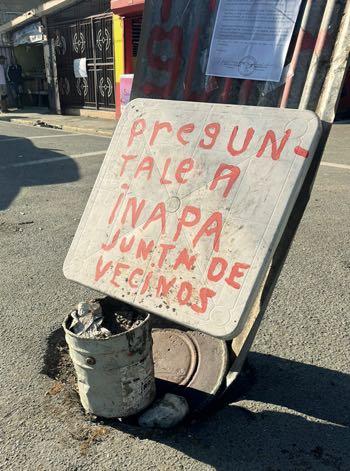 PREGUN-
TALE A
INAPA
JUNTA DE
VECINOS